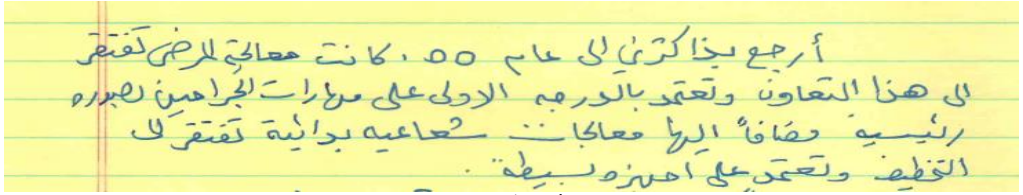 أرجع بذاكرتي الى عام ٥٥ . كانت معالجة المرضى تفتقر
الى هذا التعاون وتعتمد بالدرجه الاولى على مهارات الجراحين بصوره
رئيسيه مضافاً اليها معالجات شعاعيه بدائية تفتقر الى
التخطيط وتعتمد على اجهزه بسيطة .